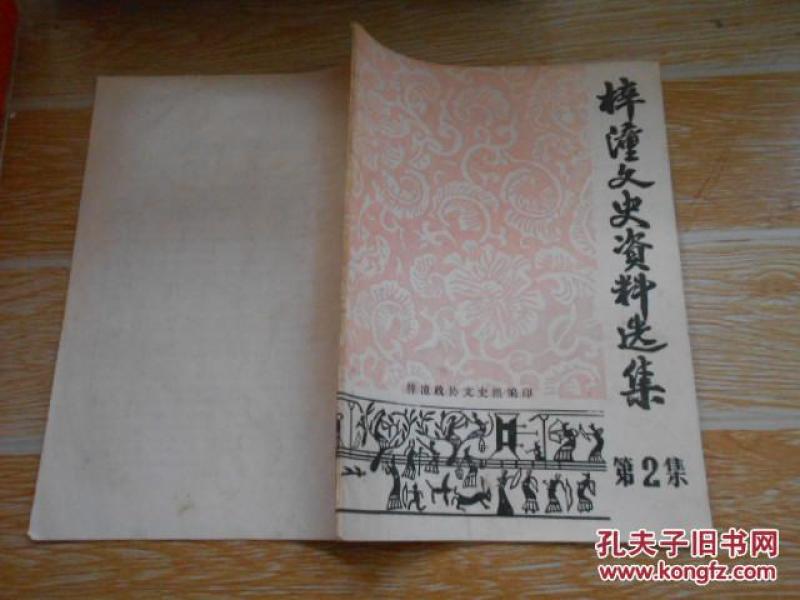 梓潼文史资料选集
第2集
梓潼政协文史组编印
孔夫子旧书网
www.kongfz.com